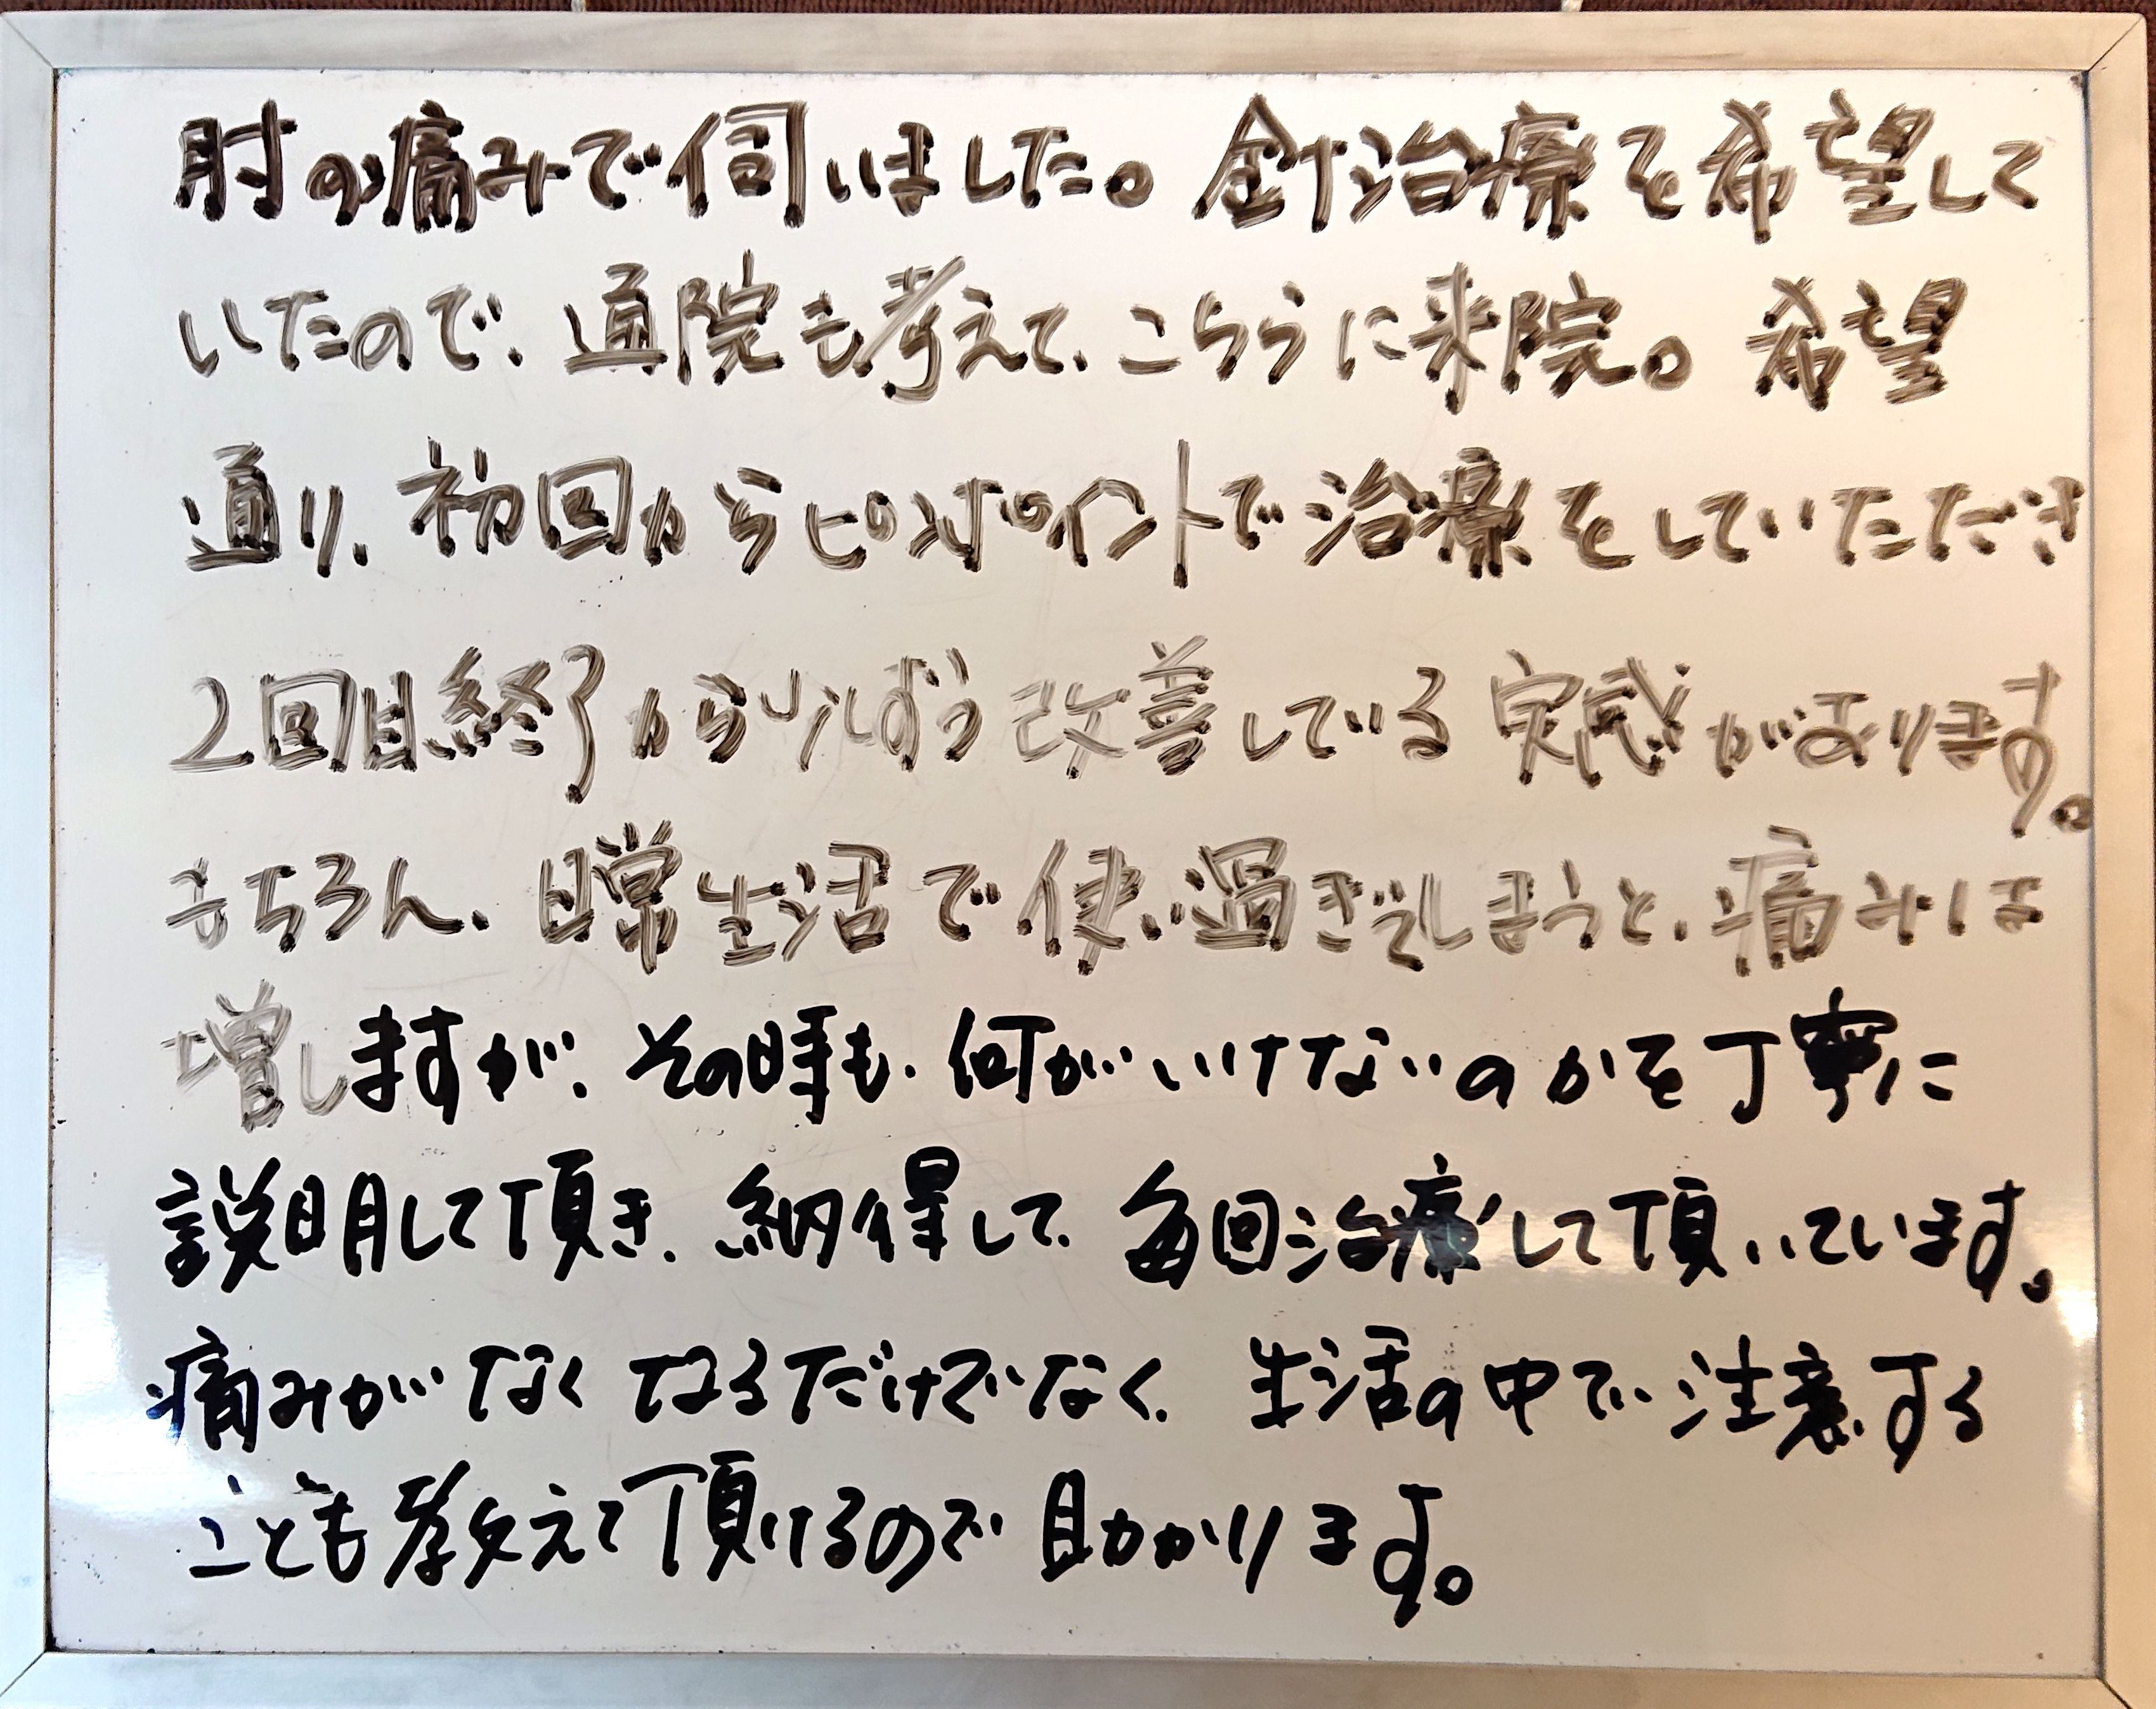 肘の痛みで伺いました。針治療を希望して
いたので、通院も考えて、こちらに来院。希望
通り、初回からピンポイントで治療をしていただき
2回目終了から少しずつ改善している実感があります。
もちろん、日常生活で使い過ぎてしまうと、痛みは
増しますが、その時も、何がいけないのかを丁寧に
説明して頂き、納得して、毎回治療して頂いています。
痛みがなくなるだけでなく、生活の中で注意する
ことも教えて頂けるので助かります。